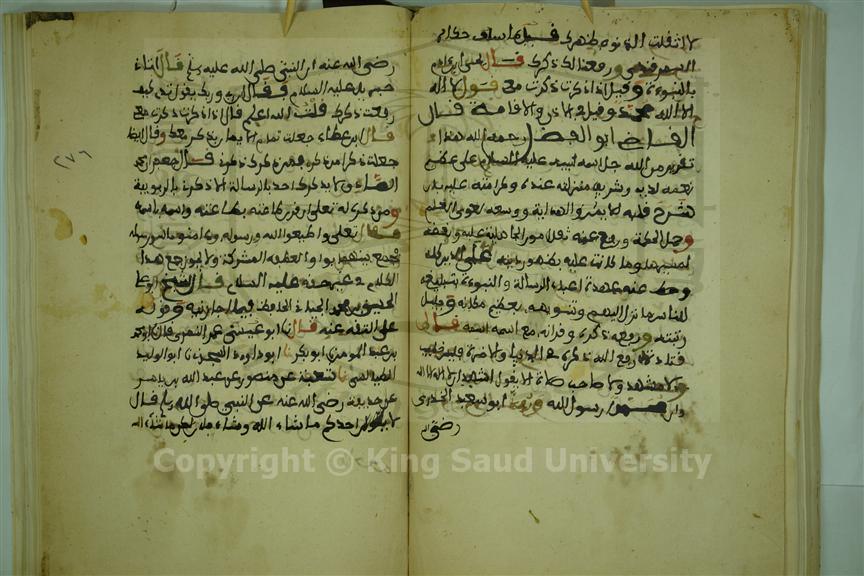 لاثقلت الذنوب ظهرك قيل ما سلف حكاه
السمرقندي ورفعنا لك ذكرك قال يحيى ابن ادم
بالنبوءة وقيل اذا ذكرت ذكرت معي في قول لا اله
الا الله محمد وقيل في الاذان والاقامة قال
القاضي ابو الفضل رحمه الله هذا
تقرير من الله جل اسمه لنبيه عليه السلام على عظيم
نعمه لديه وشريف منزلته عنده وكرامته عليه بان
شرح قلبه للايمان والهداية ووسعه لوعي العلم
وحمل الحكمة ورفع عنه ثقل امور الجاهلية عليه وبغضه
لسيرها وما كانت عليه بظهور دينه على الدين كله
وحط عنه عهدة اعباء الرسالة والنبوءة بتبليغه
للناس ما نزل اليهم وتنويهه بعظيم مكانه وجليل
رتبته ورفعه ذكره وقرانه مع اسمه اسمه قال
قتادة رفع الله ذكره في الدنيا والاخرة فليس خطيب
ولا متشهد ولا صاحب صلاة الا يقول اشهد ان لا اله الا الله
وان محمدا رسول الله وروى ابو سعيد الخدري
رضي الله
رضي الله عنه ان النبي صلى الله عليه وسلم قال اتاني
جبريل عليه السلام فقال ان ربي وربك يقول تدري كيف
رفعت ذكرك قلت الله اعلم قال اذا ذكرت ذكرت معي
قال ابن عطاء جعلت تمام الايمان بذكري معك وقال ايضا
جعلتك ذكرا من ذكري فمن ذكرك ذكرني قال جعفر بن محمد
الصادق لا يذكرك احد بالرسالة الا ذكرني بالربوبية
ومن ذكره له تعلى ان قرن طاعته بطاعته واسمه باسمه
فقال تعلى واطيعوا الله ورسوله وءامنوا بالله ورسوله
فجمع بينهما بواو العطف المشركة ولا يجوز جمع هذا
الكلام في غير حقه عليه السلام قال الشيخ ابو علي
الحسين بن محمد الجياني الحافظ فيما اجازنيه وقرأته
على الثقة عنه قال نا ابو عمر النمري قال نا ابو محمد
بن عبد المومن نا ابو بكر نا ابو داوود السجزي نا ابو الوليد
الطيالسي نا شعبة عن منصور عن عبد الله بن يسار
عن حذيفة رضي الله عنه عن النبي صلى الله عليه وسلم قال
لا يقولن احدكم ما شاء الله وشاء فلان ولكن ما شاء الله
٢٧٦
Copyright © King Saud University